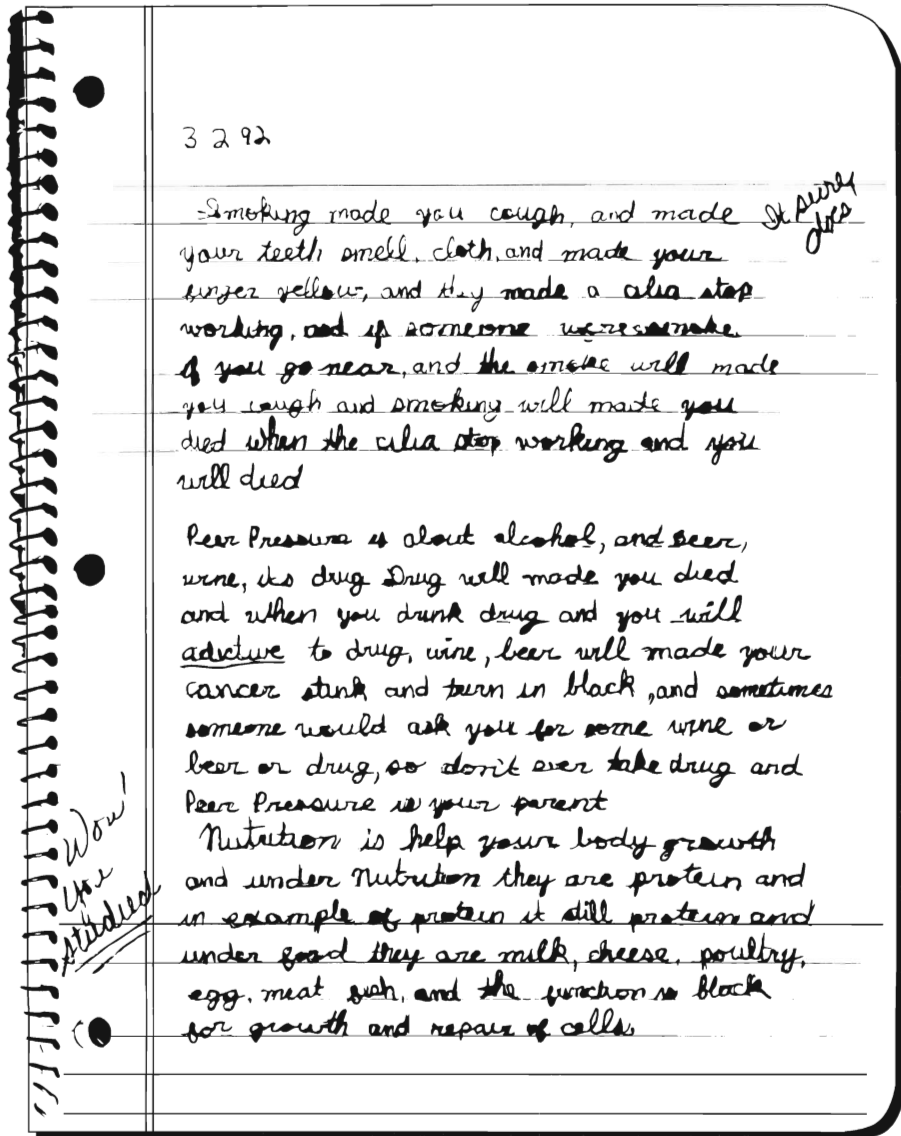 3 2 92
Smoking made you cough, and made
It sure
does
your teeth smell, cloth, and made your
finger yellow, and they made a cilia stop
working, and if someone were smoke.
if you go near, and the smoke will made
you cough and smoking will made you
died when the cilia stop working and you
will died
Peer Pressure is about alcohol, and beer,
wine, its drug Drug will made you died
and when you drink drug and you will
adictive to drug, wine, beer will made your
cancer stink and turn in black, and sometimes
someone would ask you for some wine or
beer or drug, so don't ever take drug and
Peer Pressure is your parent
Nutrition is help your body growth
and under Nutrition they are protein and
in example of protein it still protein and
under food they are milk, cheese, poultry,
egg, meat fish, and the function is block
for growth and repair of cells.
Wow!
You
studied